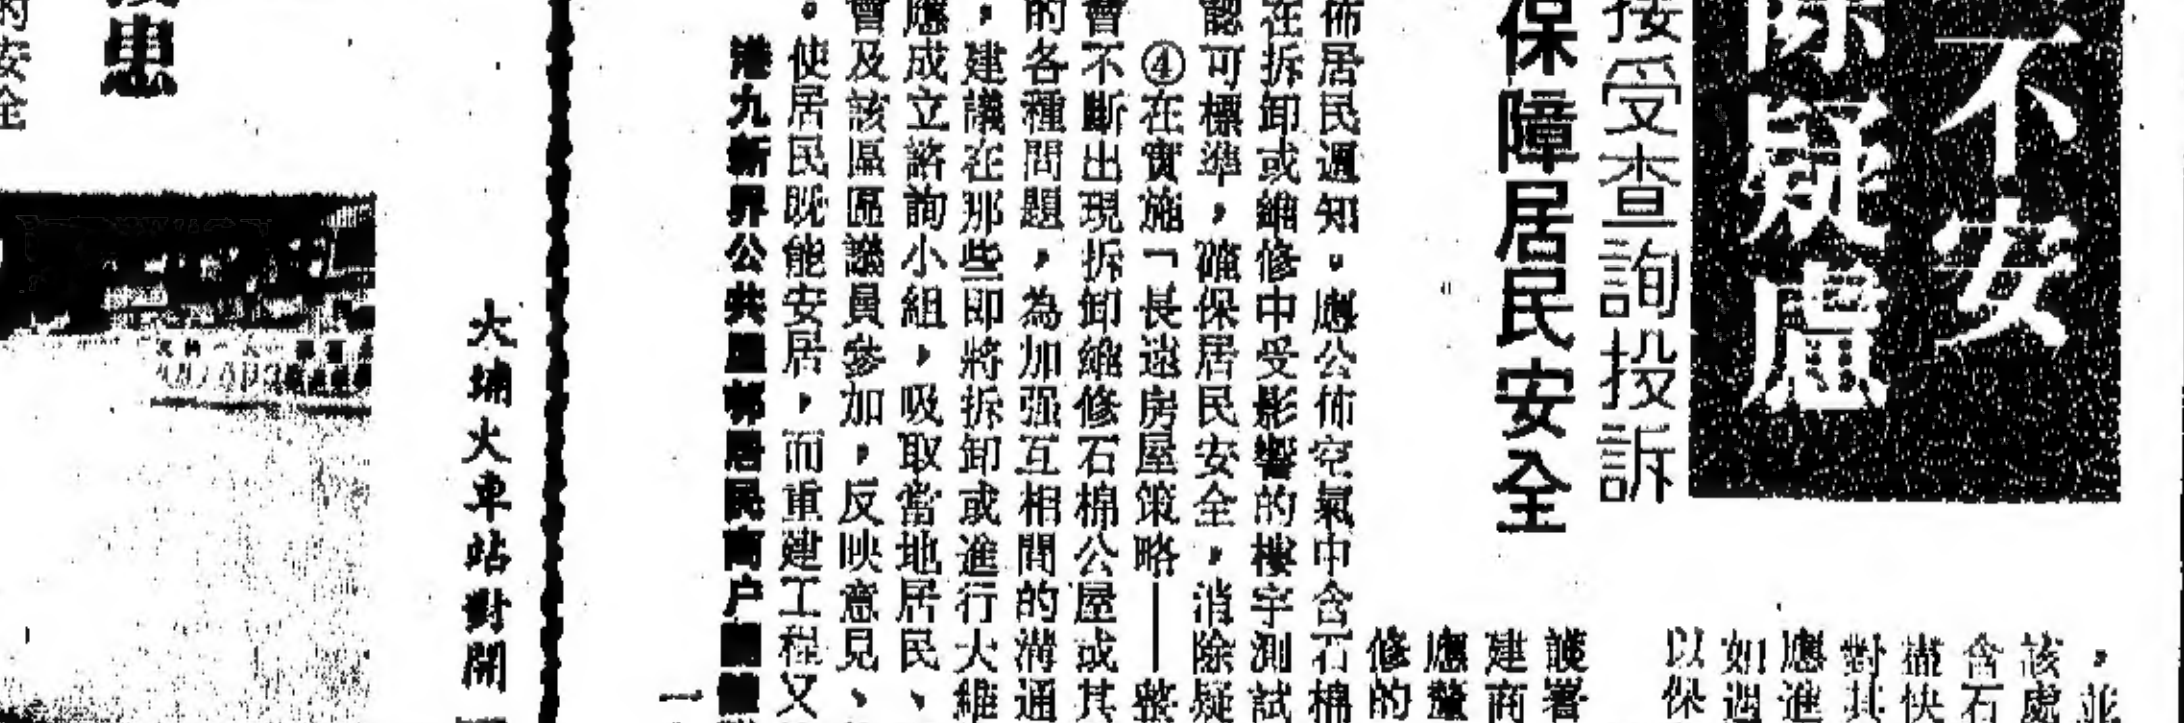 不安
除疑慮
接受查詢投訴
保障居民安全
，並
該處
含石
盡快
對其
應進
如週
以保
護署
建商
應
修的
佈居民週知。應公佈空氣中含石棉
在拆卸或維修中受影響的樓宇測試
認可標準，確保居民安全，消除疑
④在實施「長遠房屋策略——整
會不斷出現拆卸維修石棉公屋或其
的各種問題，為加强互相間的溝通
，建議在那些即將拆卸或進行大維
應成立諮詢小組，吸取當地居民、
會及該區區議員參加，反映意見、
。使居民既能安居，而重建工程又
港九新界公共屋邨居民商户
大埔火車站對開
患
的安全